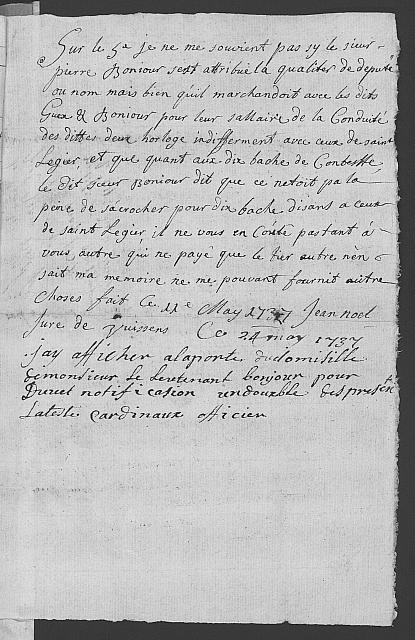 Sur le 5e je ne me souvient pas sy le sieur
pierre Bonjour sent attribue la qualiter de deputé
ou nom mais bien quil marchandoit avec les dits
Guex & Bonjour pour leur sallaire de la Conduite
des dittes deux horloge indifferment avec ceux de saint
Legier et que quant aux dix bache de Contesté
le dit sieur Bonjour dit que ce netoit pa la
pene de sacrocher pour dix bache disans a ceux
de saint Legier il ne vous en Coute pas tant á
vous autre qui ne payé que le tier autre nen
sait ma memoire ne me pouvant fournit autre
Choses fait Ce 11e May 1737 Jean noel
Jure de Ce 24 may 1737
Jay afficher alaporte du domisille
demonsieur Le Lieutenant bonjour pour
notificasion undouble des presen
cardinaux officier